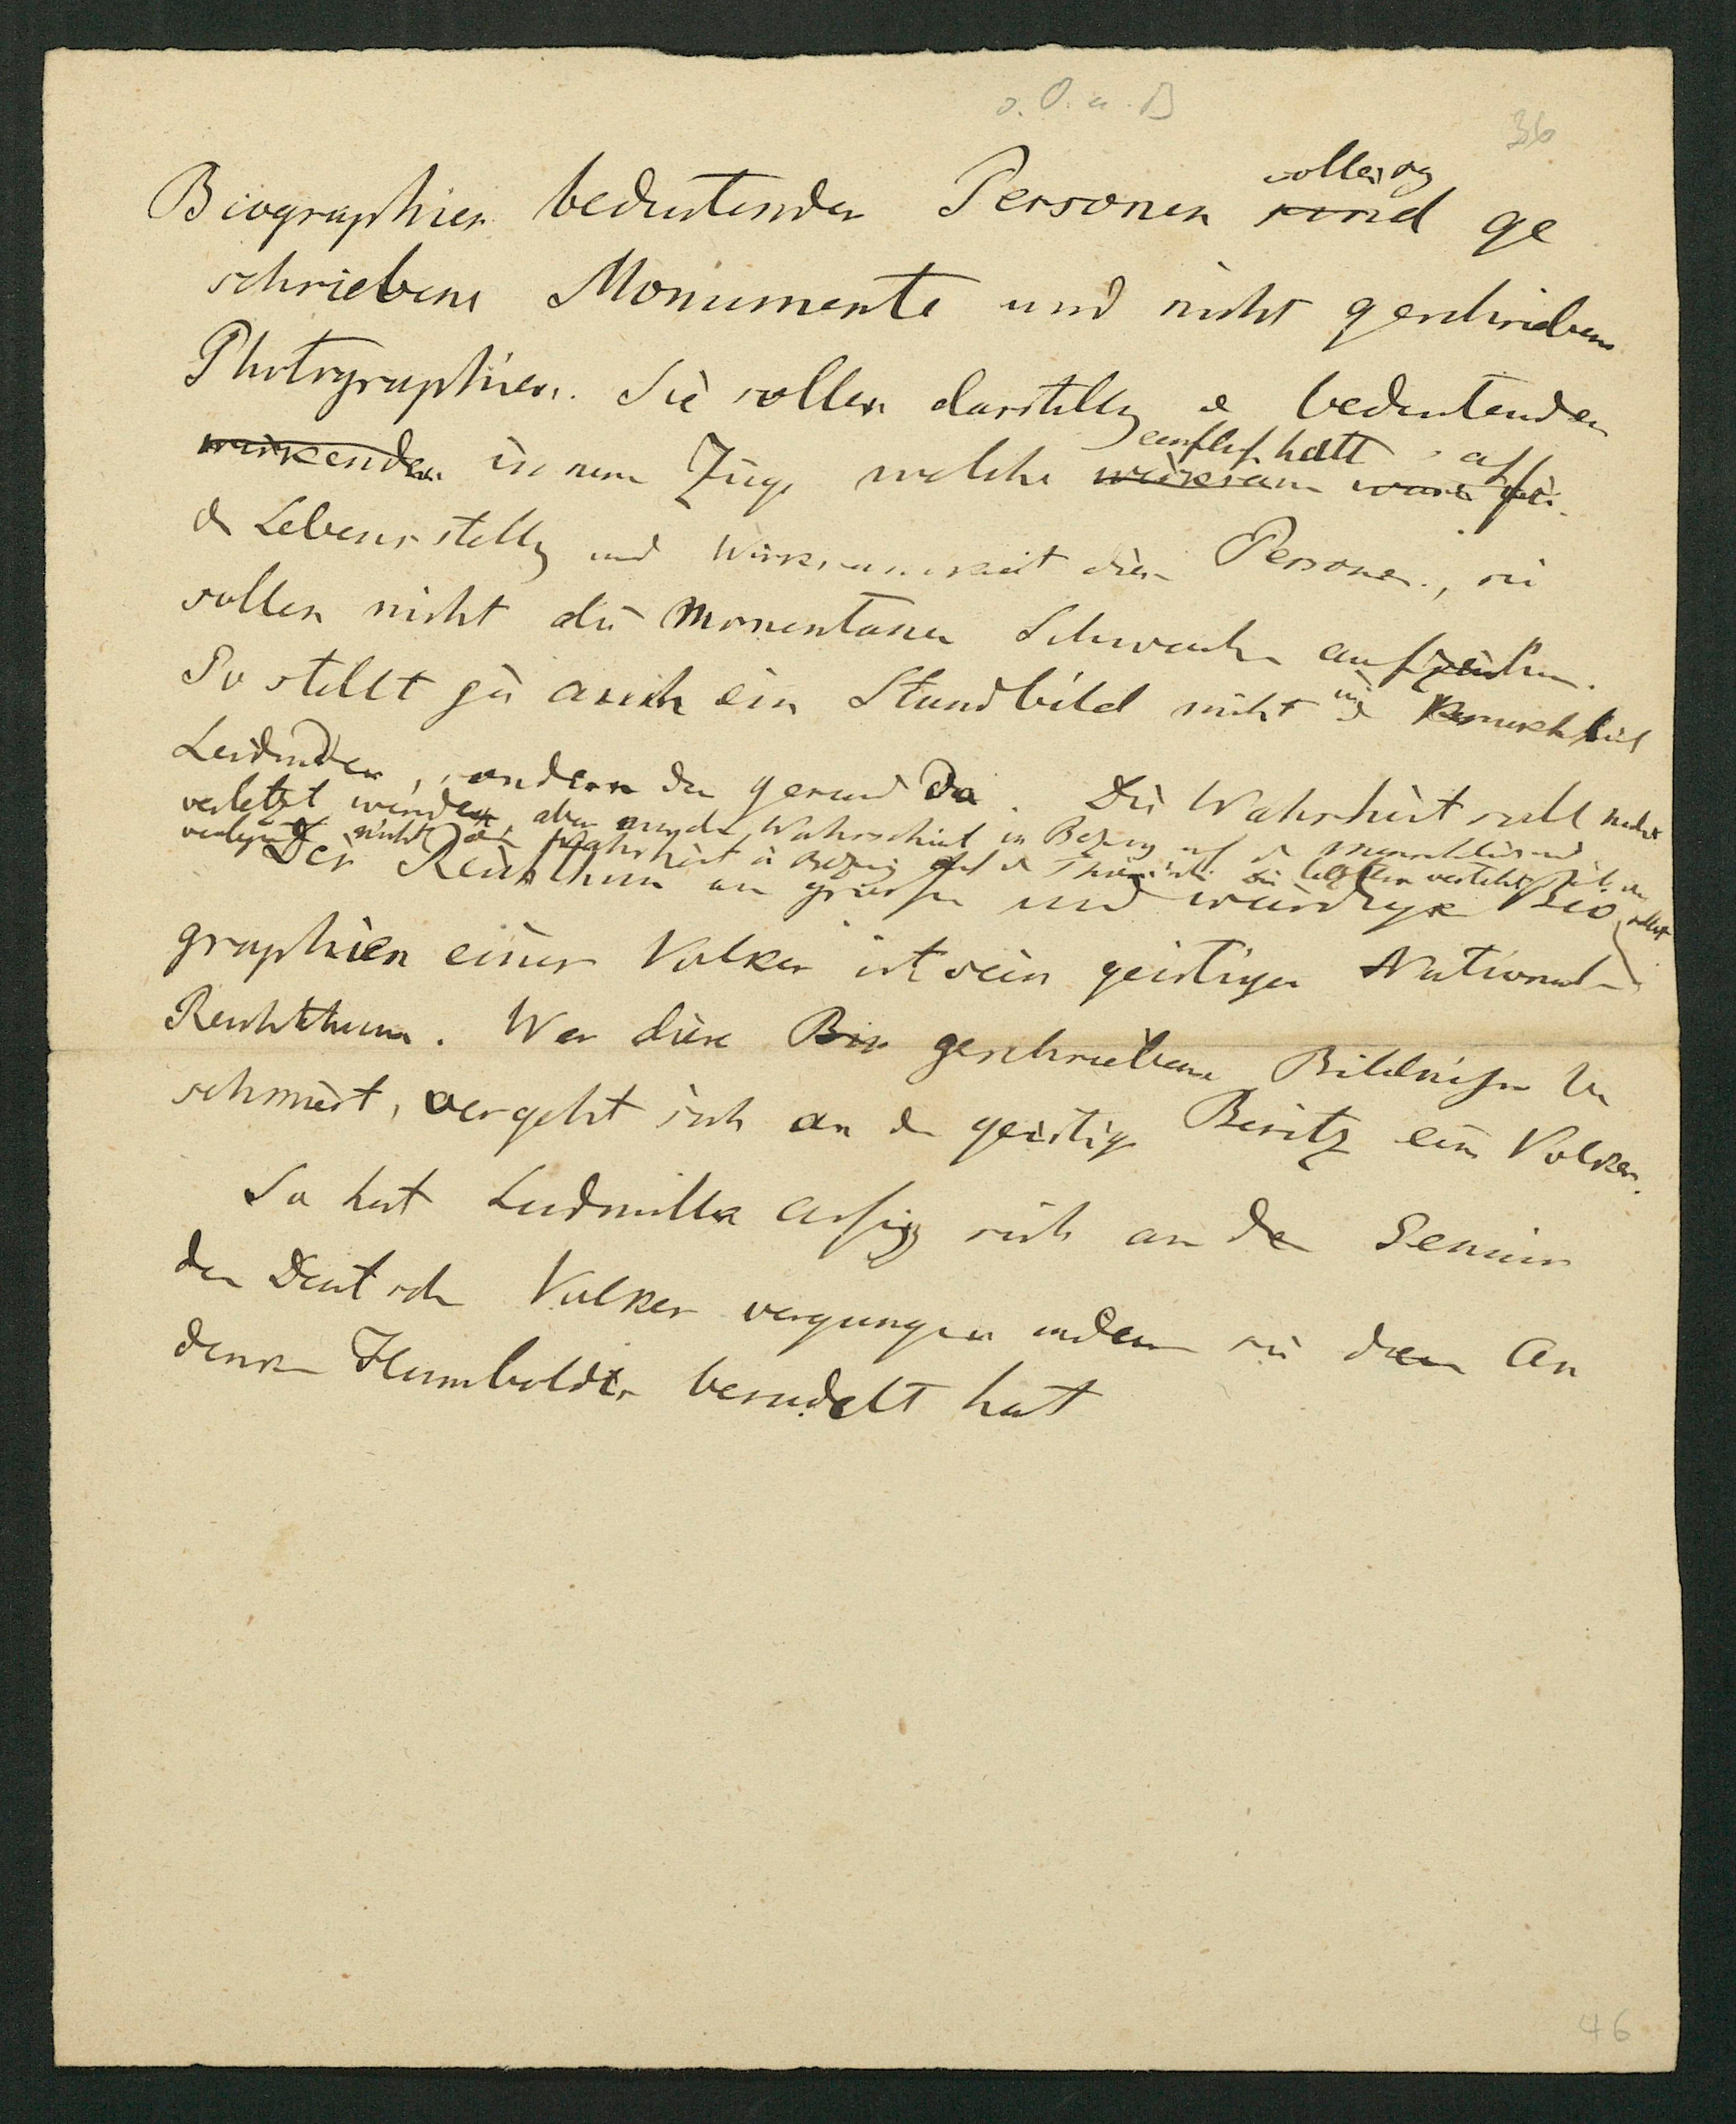 o. O. u. D
36
sollen
Biographien bedeutender Personen sind ge
schriebene Monumente und nicht geschriebene
Photographien. Sie sollen darstellen d bedeutenden
einfluß hatt auf
wirkenden innern Züge welche wirksam waren für
d Lebensstellg und Wirksamkeit dieser Personen, sie
sollen nicht die Momentanen Schwächen aufzeichnen.
So stellt ja auch ein Standbild nicht den
Leidenden, sondern den gesunden da. Die Wahrheit soll nicht
verletzt werden, aber nur die Wahrheit in Bezug auf d Menschliche und
nicht die Wahrheit in Bezug auf d Thierische. Die letztere versteht sich von selbst
Der Reichthum an großen und würdigen Bio
graphien eines Volkes ist sein geistiger National-
Reichthum. Wer diese Bio geschriebene Bildnisse be
schmiert, vergeht sich an d geistige Besitz eines Volkes.
So hat Ludmilla Assing sich an dem Genius
des Deutschen Volkes vergangen indem sie dem An
denken Humboldts besudelt hat
46